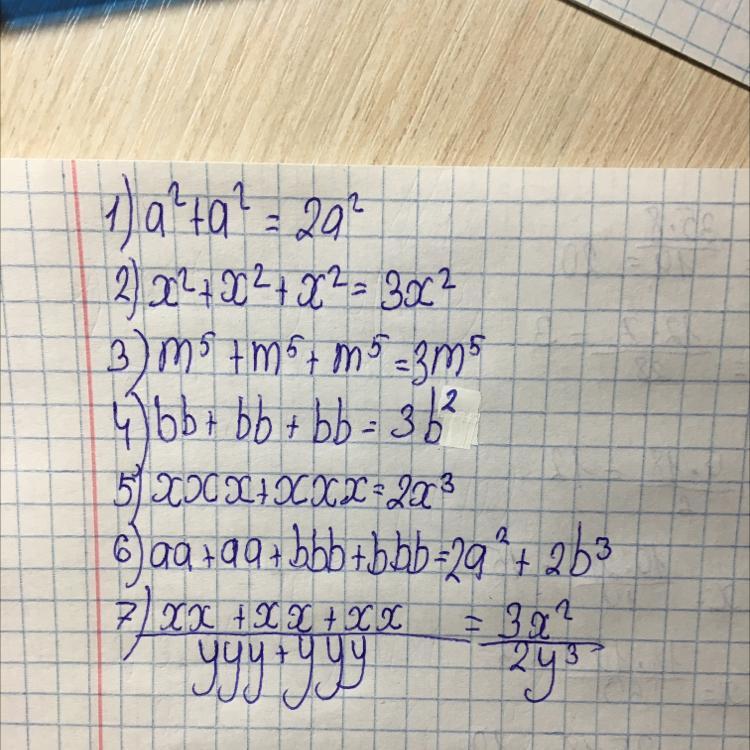 1) a² + a² = 2a²
2) x² + x² + x² = 3x²
3) m⁵ + m⁵ + m⁵ = 3m⁵
4) bb + bb + bb = 3b²
5) xxx + xxx = 2x³
6) aa + aa + bbb + bbb = 2a² + 2b³
7) xx + xx + xx = 3x²
yyy + yyy 2y³